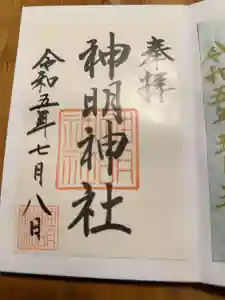 奉拝
神明神社
令和五年七月八日